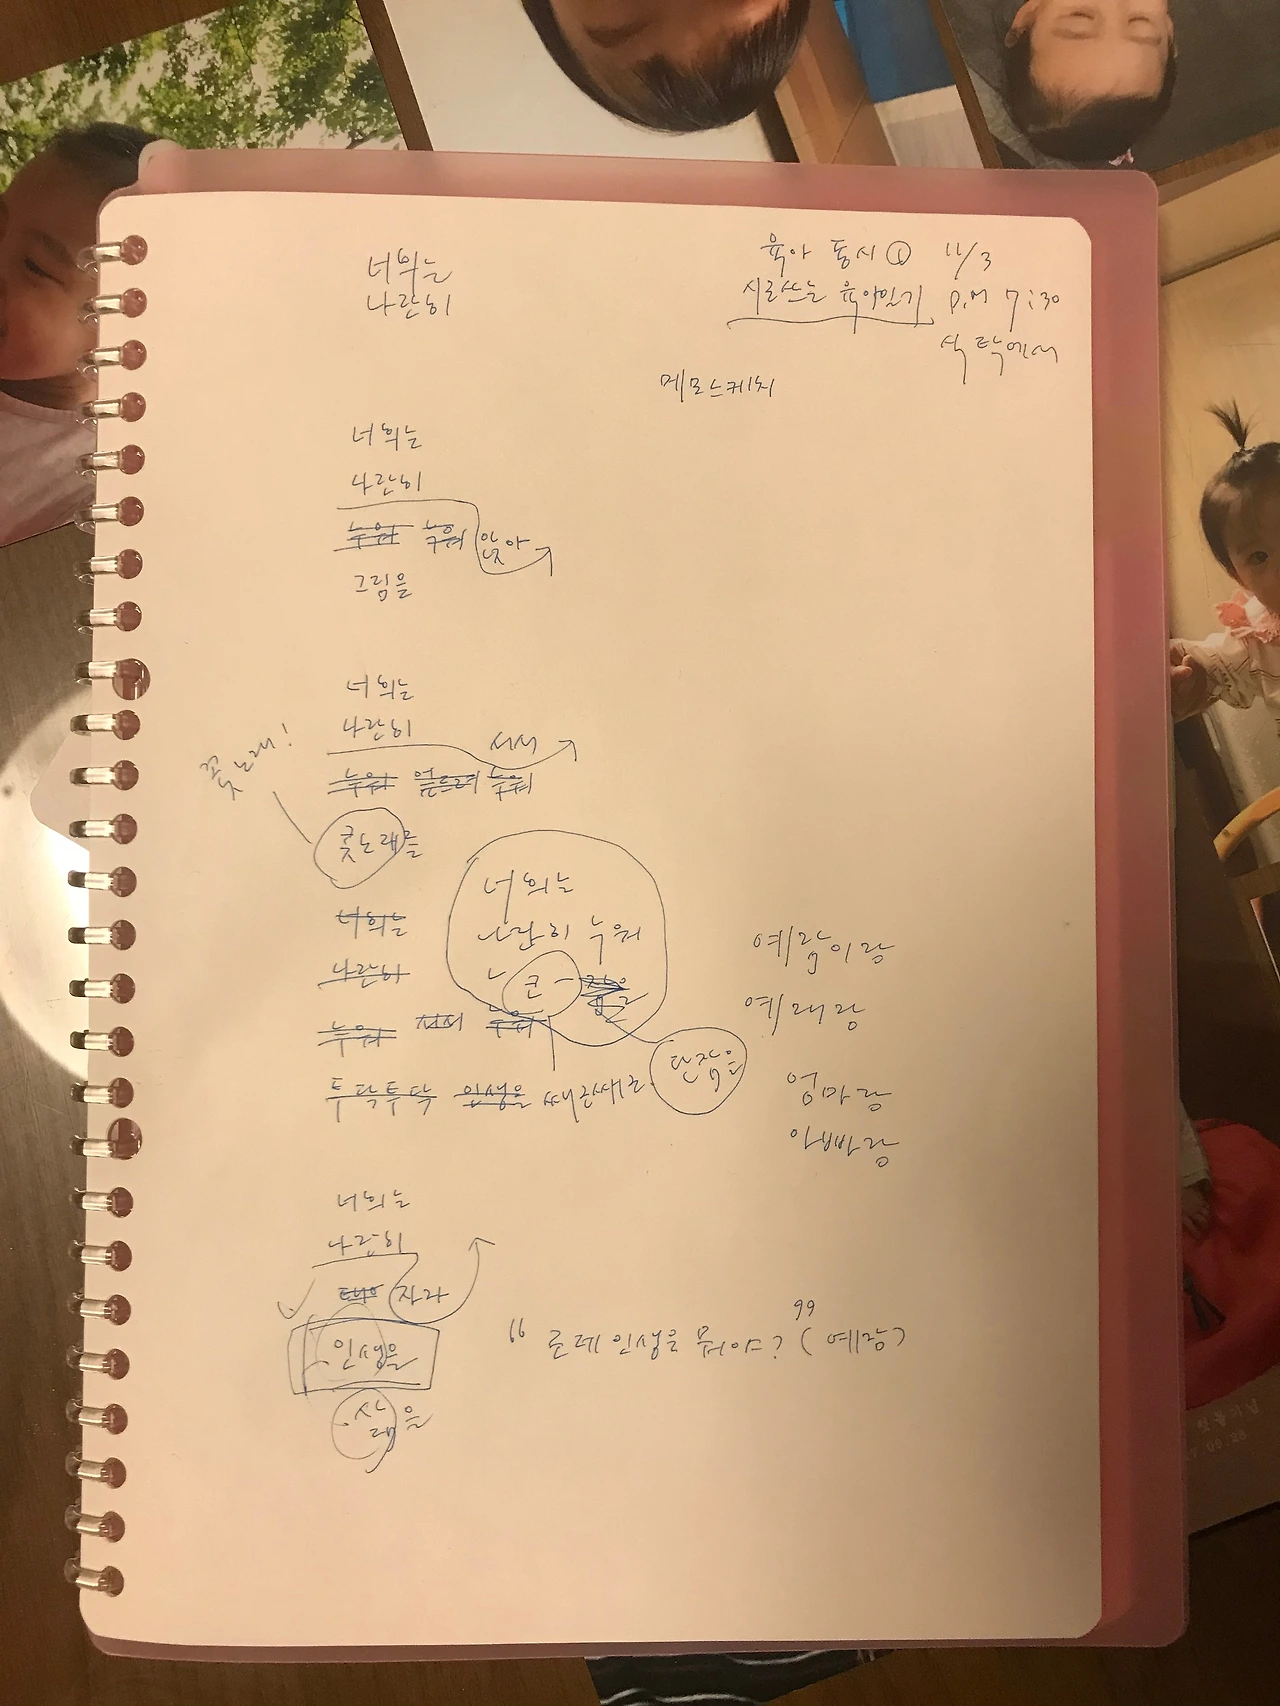 너희는
나란히
육아 동시 ① 11/3
시로쓰는 육아일기 P.M 7:30
식탁에서
메모스케치
너희는
나란히
누워 누워 앉아
그림을
너희는
나란히
서서
누워 엎드려 누워
꽃노래!
꽃노래를
너희는
나란히
누워 서서 누워
투닥투닥 인생을 쌔근쌔근
너희는
나란히 누워
코 - 잠을
단잠을
예람이랑
예래랑
엄마랑
아빠랑
너희는
나란히
자라
인생을
삶을
" 근데 인생은 뭐야? " (예랑)